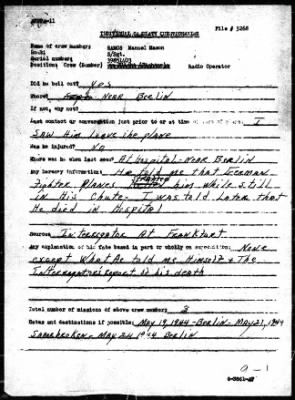 File # 3268
INDIVIDUAL CASUALTY QUESTIONNAIRE
Name of crew member: RAMOS Manuel Mason
Rank: S/Sgt.
Serial number:
Position: Crew (Bomber) Radio Operator
Did he bail out? Yes
Where? Near Berlin
If not, why not?
Last contact or conversation just prior to or at time of I
Saw Him Leave the plane
Was he injured? No
Where was he when last seen? At hospital - Near Berlin
Any hearsay information: He told me that German
Fighter Planes him while still
in His Chute. I was told Later that
He died in Hospital
Source: Interrogator At Frankfurt
Any explanation of his fate based in part or wholly on supposition: None
except What He told me Himself & The
Interrogators report of his death
Total number of missions of above crew member: 3
Dates and destinations if possible: May 19, 1944 - Berlin - May 21, 1944
Saarbrucken - May 24 1944 Berlin
a-1